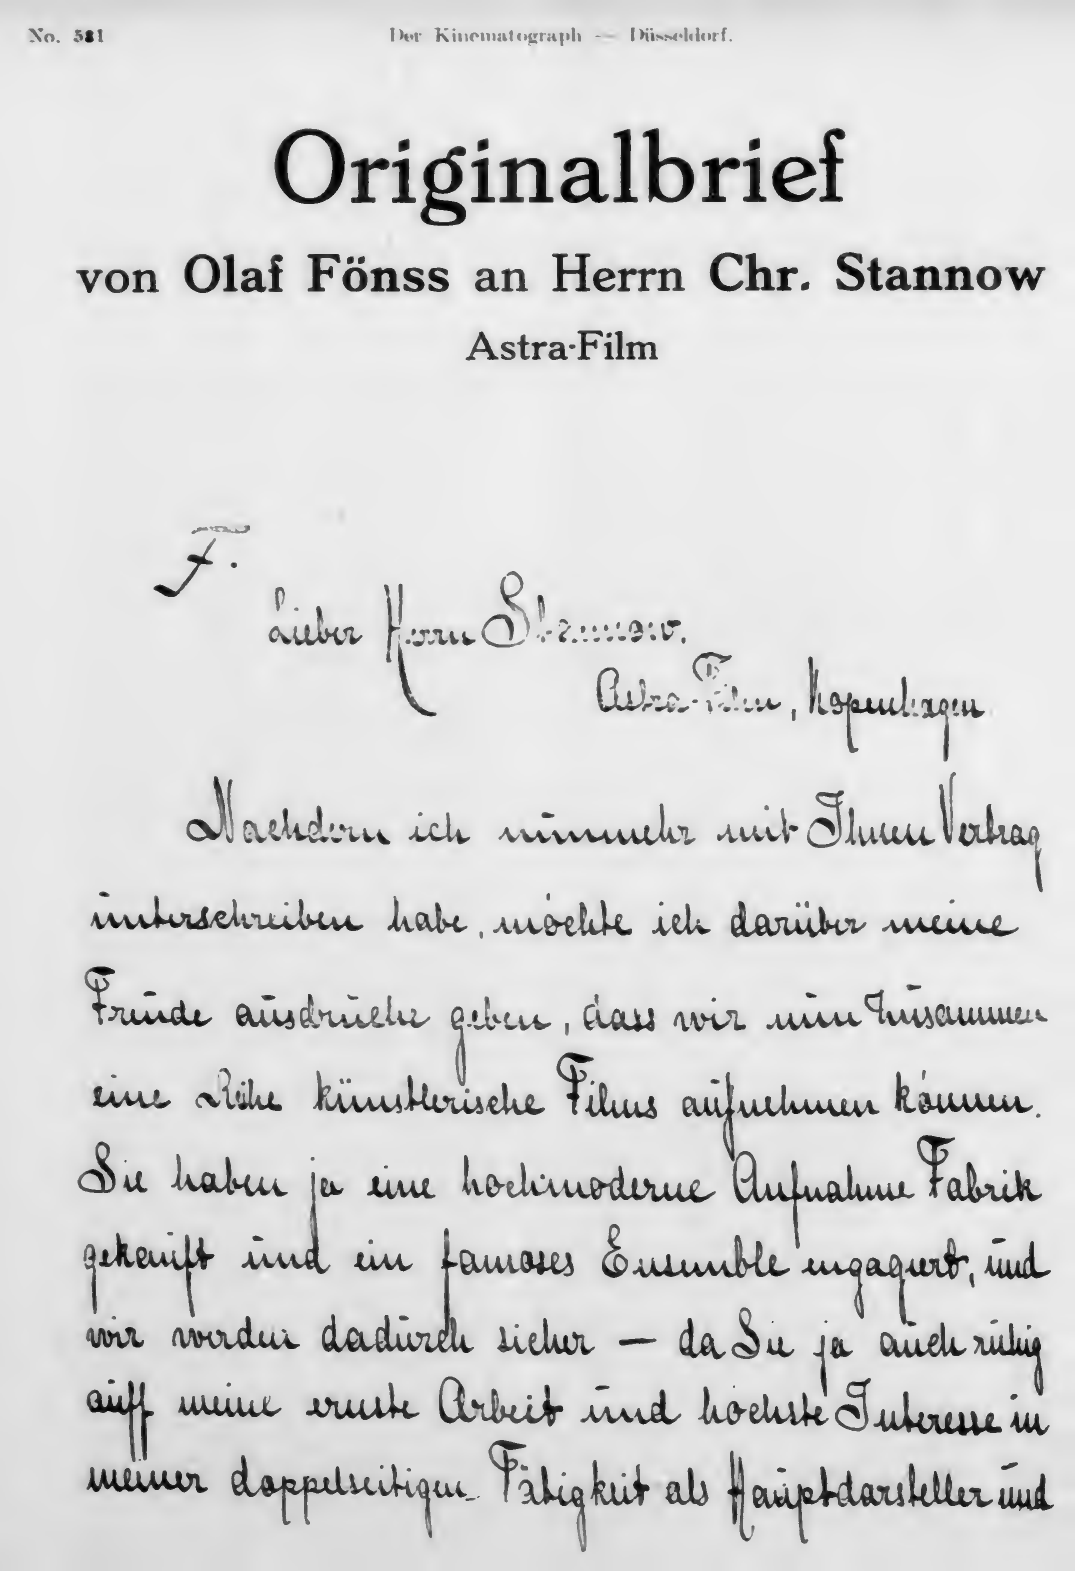 No. 581
Der Kinematograph — Düsseldorf.
Originalbrief
von Olaf Fönss an Herrn Chr. Stannow
Astra-Film
F.
Lieber Herrn Stannow.
Astra-Film, Kopenhagen
Nachdem ich nunmehr mit Ihnen Vertrag
unterschreiben habe, möchte ich darüber meine
Freude ausdrucke geben, dass wir nun zusammen
eine Reihe künstlerische Films aufnehmen können.
Sie haben ja eine hochmoderne Aufnahme Fabrik
gekauft und ein famoses Ensemble engagiert, und
wir werden dadurch sicher — da Sie ja auch ruhig
auff meine ernste Arbeit und höchste Interesse in
meiner doppelseitigen Tätigkeit als Hauptdarsteller und